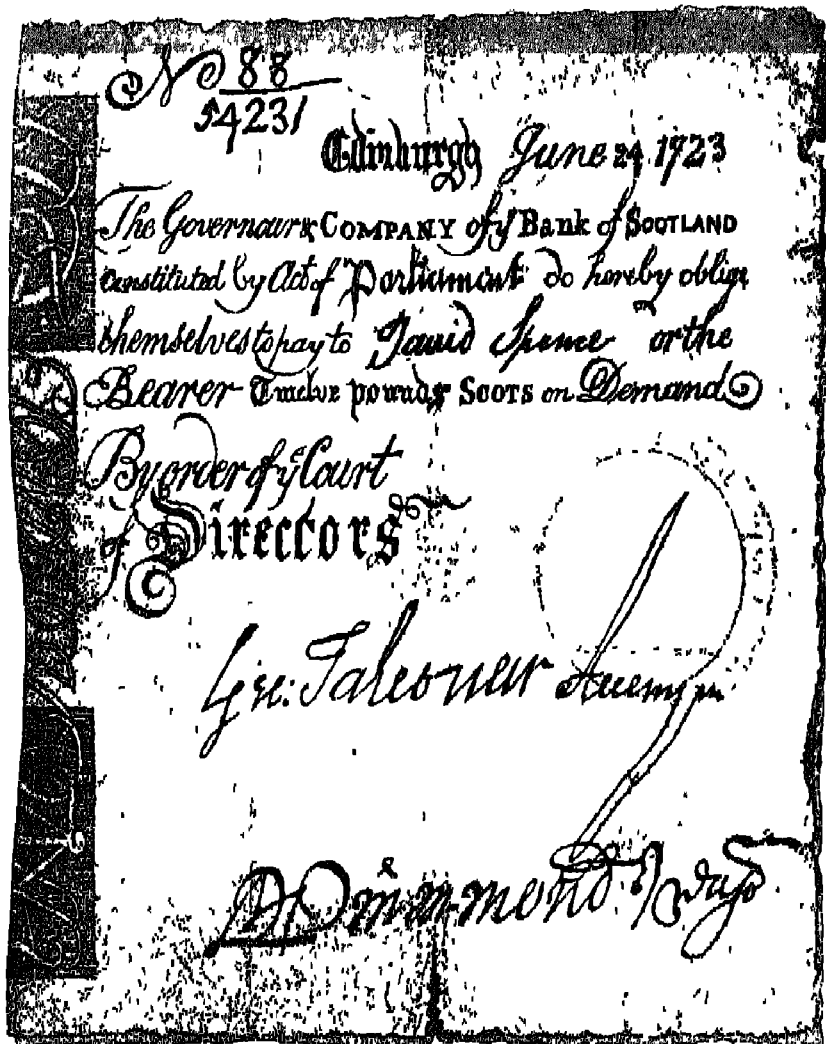 No 88
54231
Edinburgh June 24 1723
The Governour & COMPANY of ye Bank of SCOTLAND
constituted by Act of Parliament do hereby oblige
themselves to pay to David Spence or the
Bearer Twelve pounds SCOTS on Demand
By order of ye Court
of Directors
Geo: Falconar
Drummond